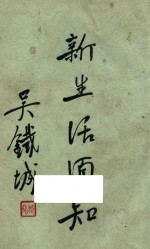 新生活須知
吳鐵城